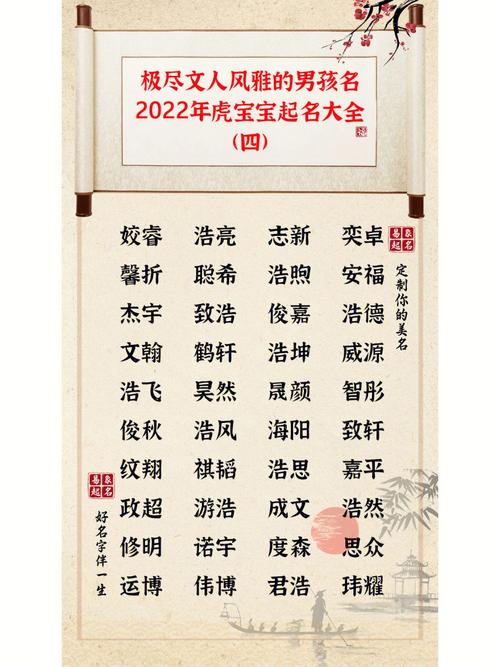 极尽文人风雅的男孩名
2022年虎宝宝起名大全
(四)
姣睿 浩亮 志新 奕卓
馨折 聪希 浩煦 安福
杰宇 致浩 俊嘉 浩德
文翰 鹤轩 浩坤 威源
浩飞 昊然 晟颜 智彤
俊秋 浩风 海阳 致轩
纹翔 祺韬 浩思 嘉平
政超 游浩 成文 浩然
修明 诺宇 度森 思众
运博 伟博 君浩 玮耀
易象
起名
定制你的美名
易象
起名
好名字伴一生